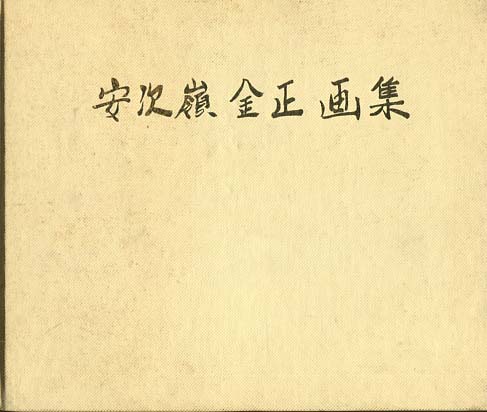 安次嶺金正画集